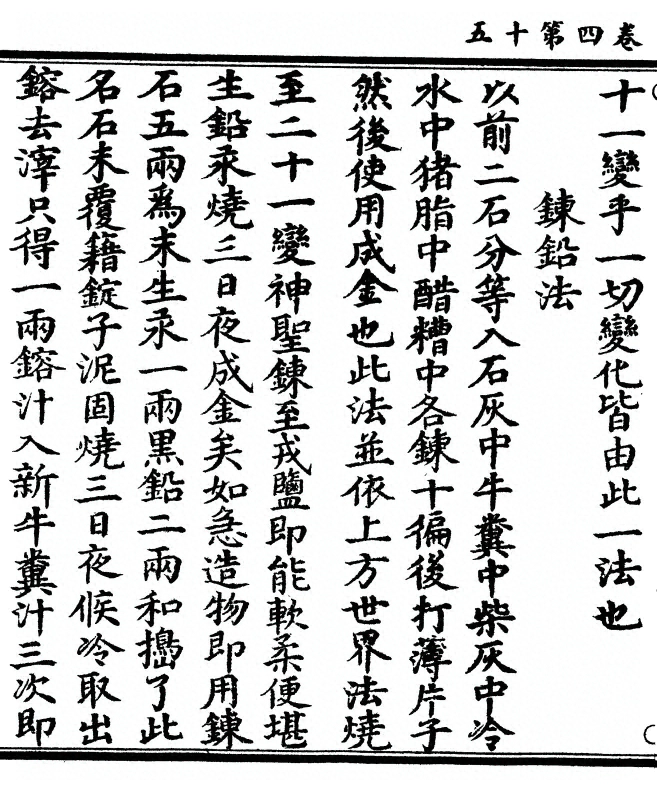 卷四第十五
十一變乎一切變化皆由此一法也
鍊鉛法
以前二石分等入石灰中牛糞中柴灰中冷
水中猪脂中醋糟中各鍊十徧後打薄片子
然後使用成金也此法並依上方世界法燒
至二十一變神聖鍊至戎鹽即能軟柔便堪
生鉛汞燒三日夜成金矣如急造物即用鍊
石五兩爲末生汞一兩黑鉛二兩和擣了此
名石末覆籍錠子泥固燒三日夜候冷取出
鎔去滓只得一兩鎔汁入新牛糞汁三次即